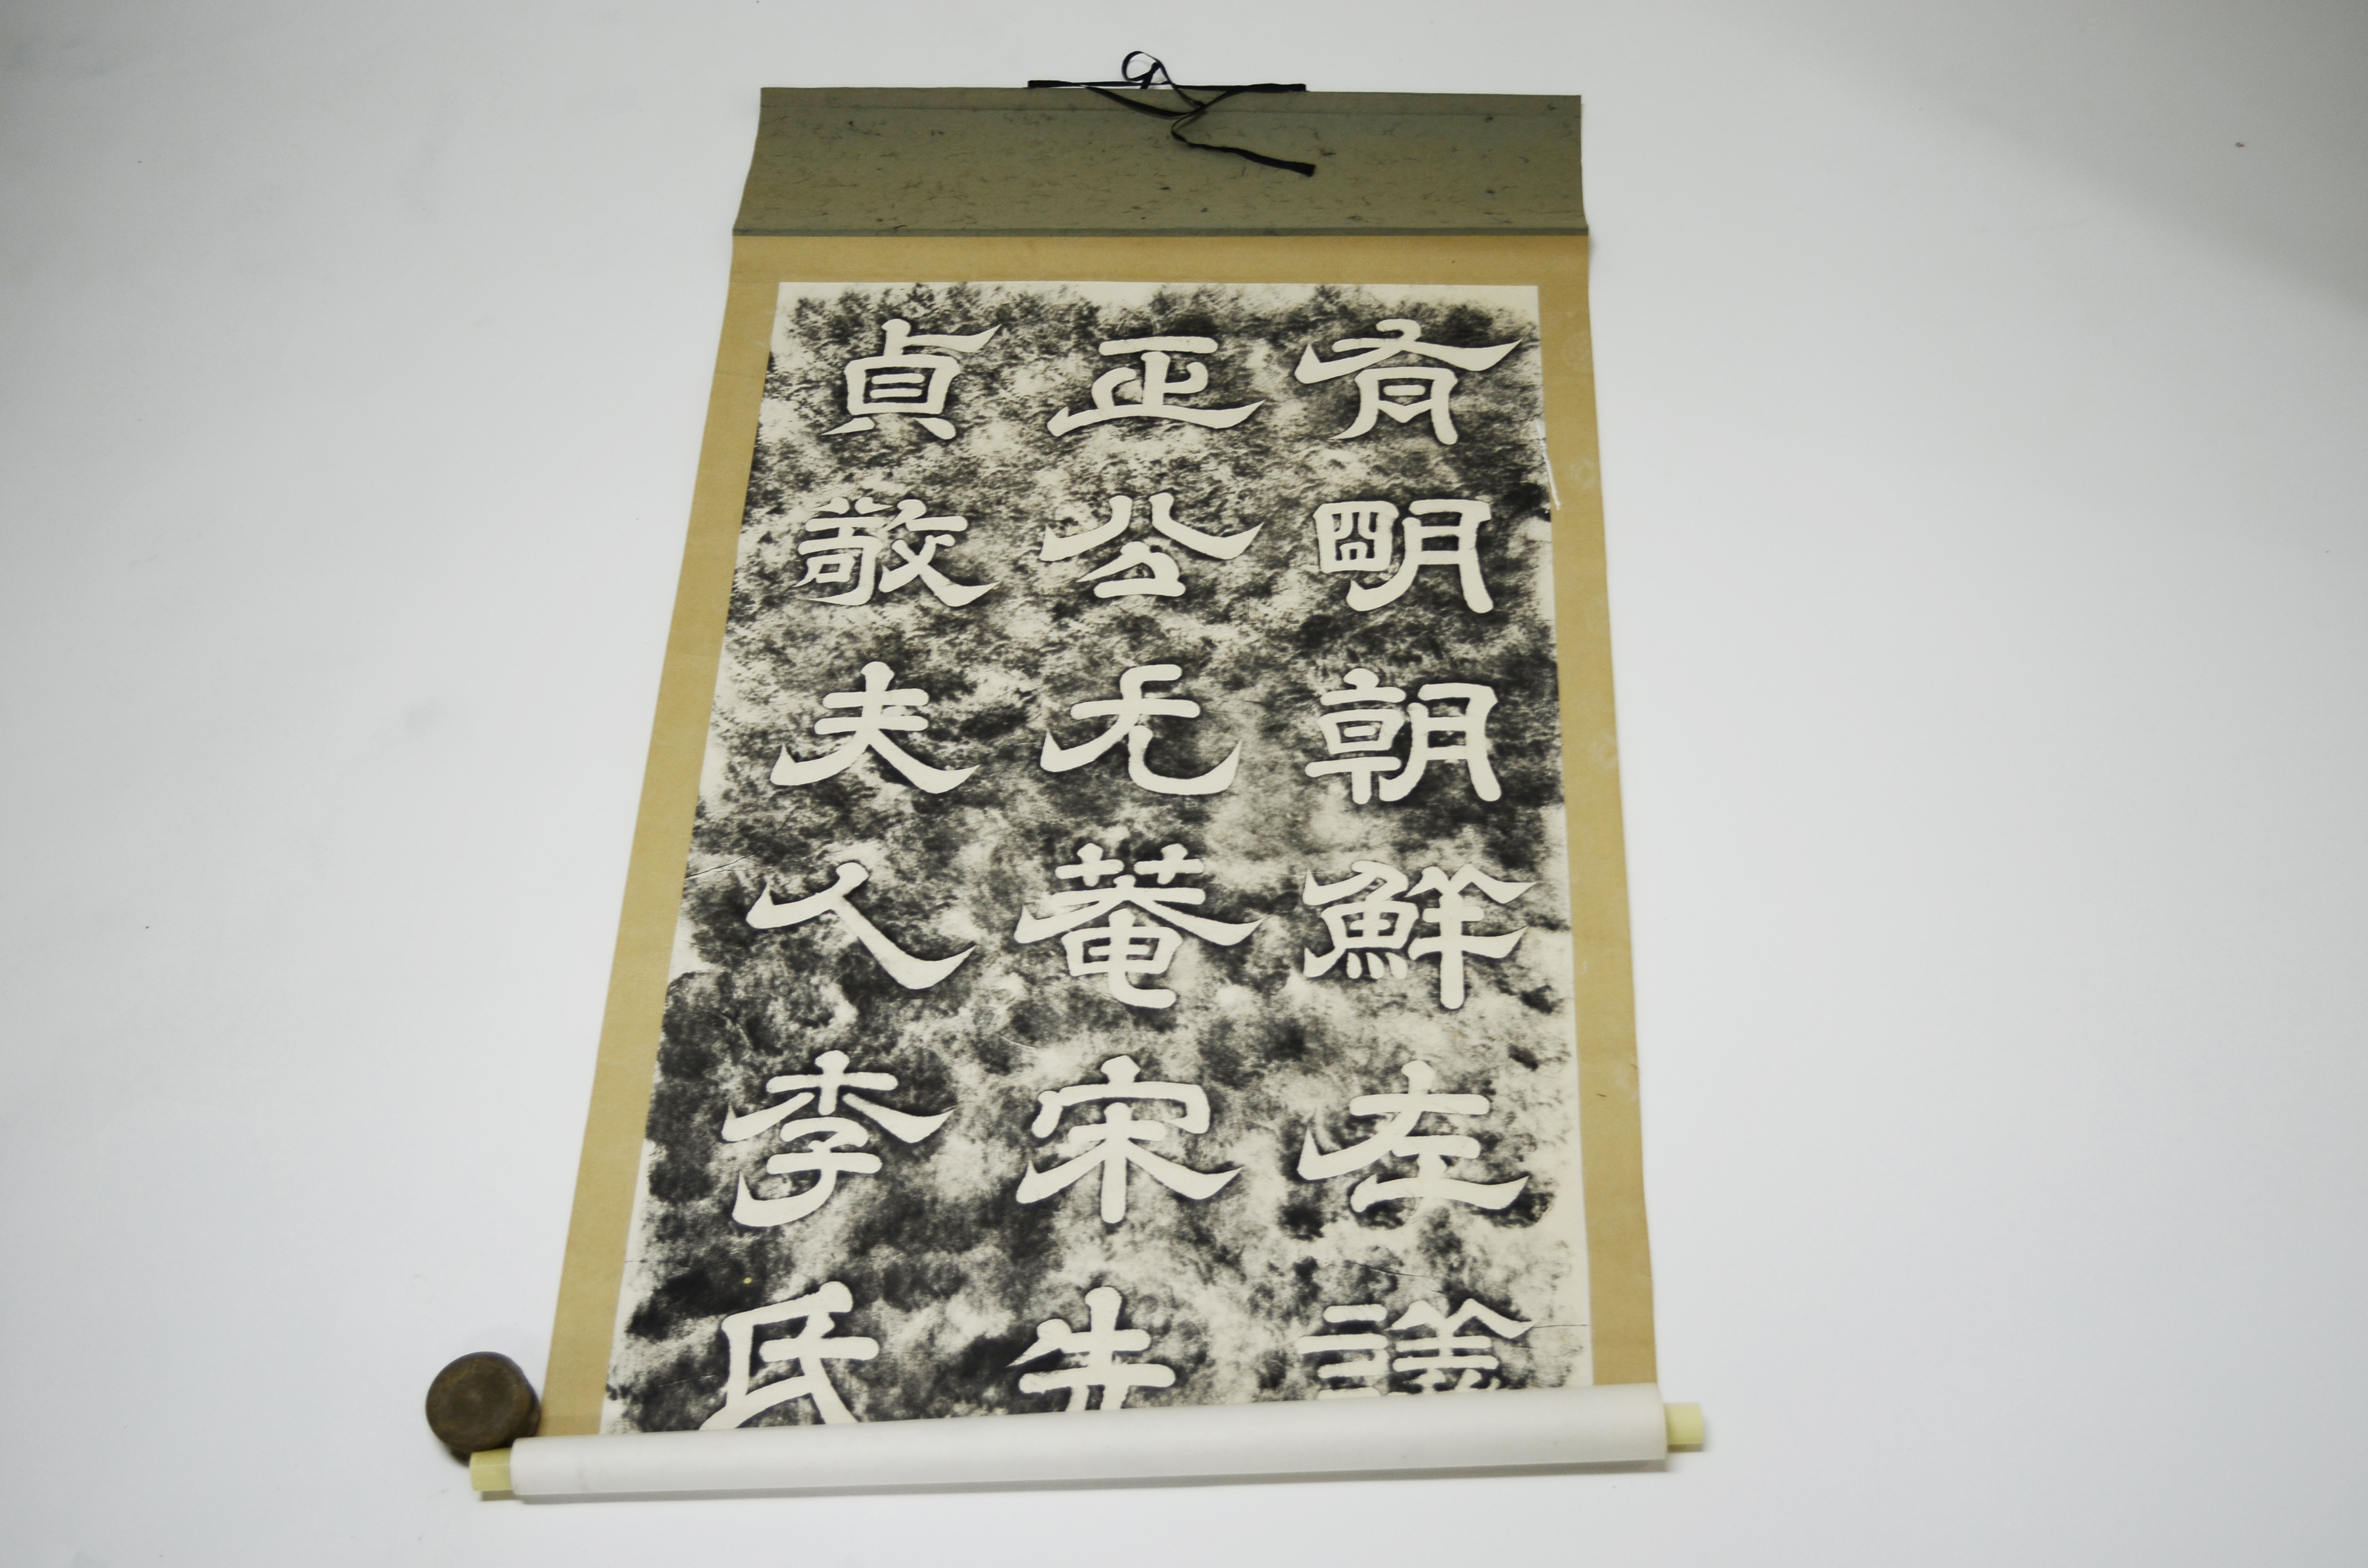 有明朝鮮左議
正公尤菴宋先
貞敬夫人李氏